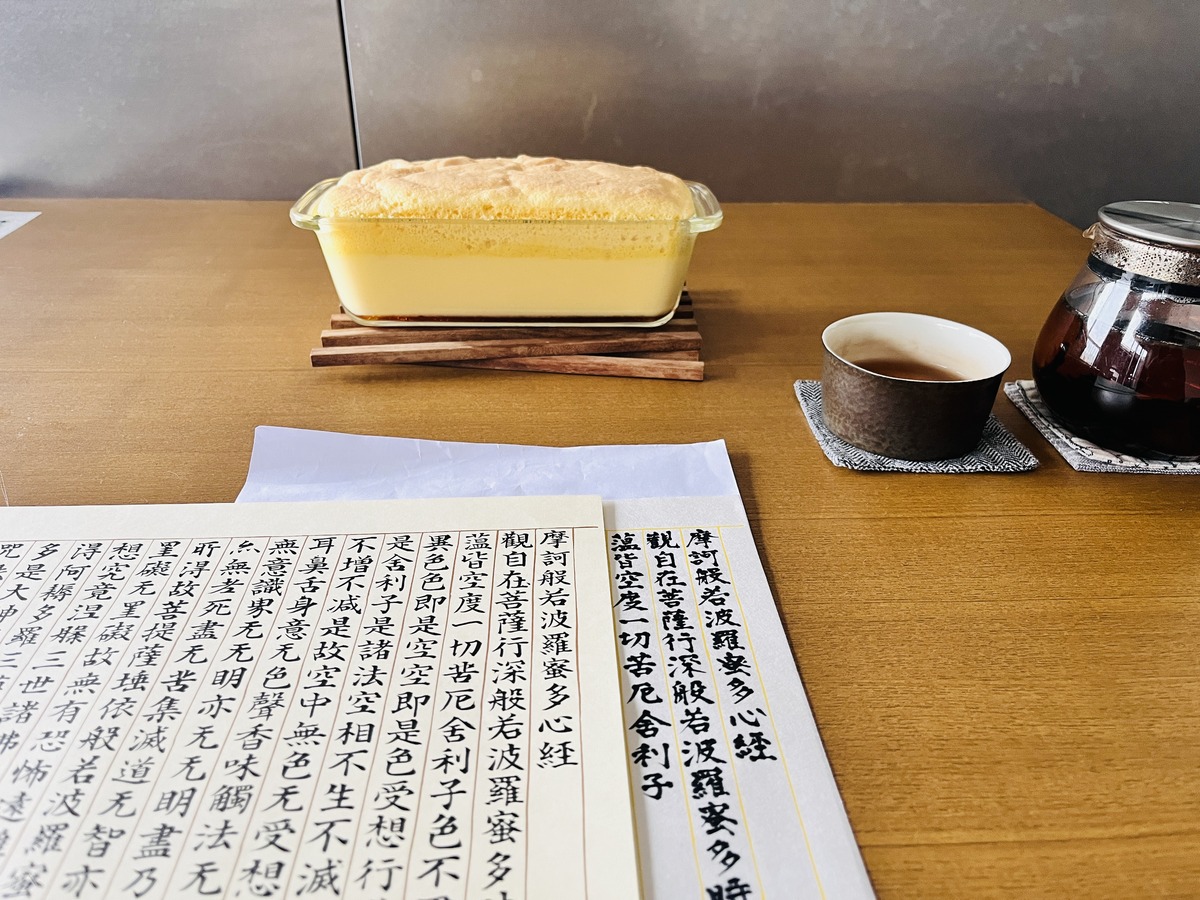 摩訶般若波羅蜜多心經
觀自在菩薩行深般若波羅蜜多時
薀皆空度一切苦厄舍利子
摩訶般若波羅蜜多心経
觀自在菩薩行深般若波羅蜜多
薀皆空度一切苦厄舍利子色不
異色色即是空空即是色受想行
是舍利子是諸法空相不生不滅
不增不减是故空中無色无受想
耳鼻舌身意无色聲香味觸法无
無意識界无无明亦无无明盡乃
無老死盡无苦集滅道无智亦
所得故菩提薩埵依般若波羅蜜
罣礙无罣礙故無有恐怖遠
想究竟涅槃三世諸佛
得阿耨多羅三
多是大神
咒